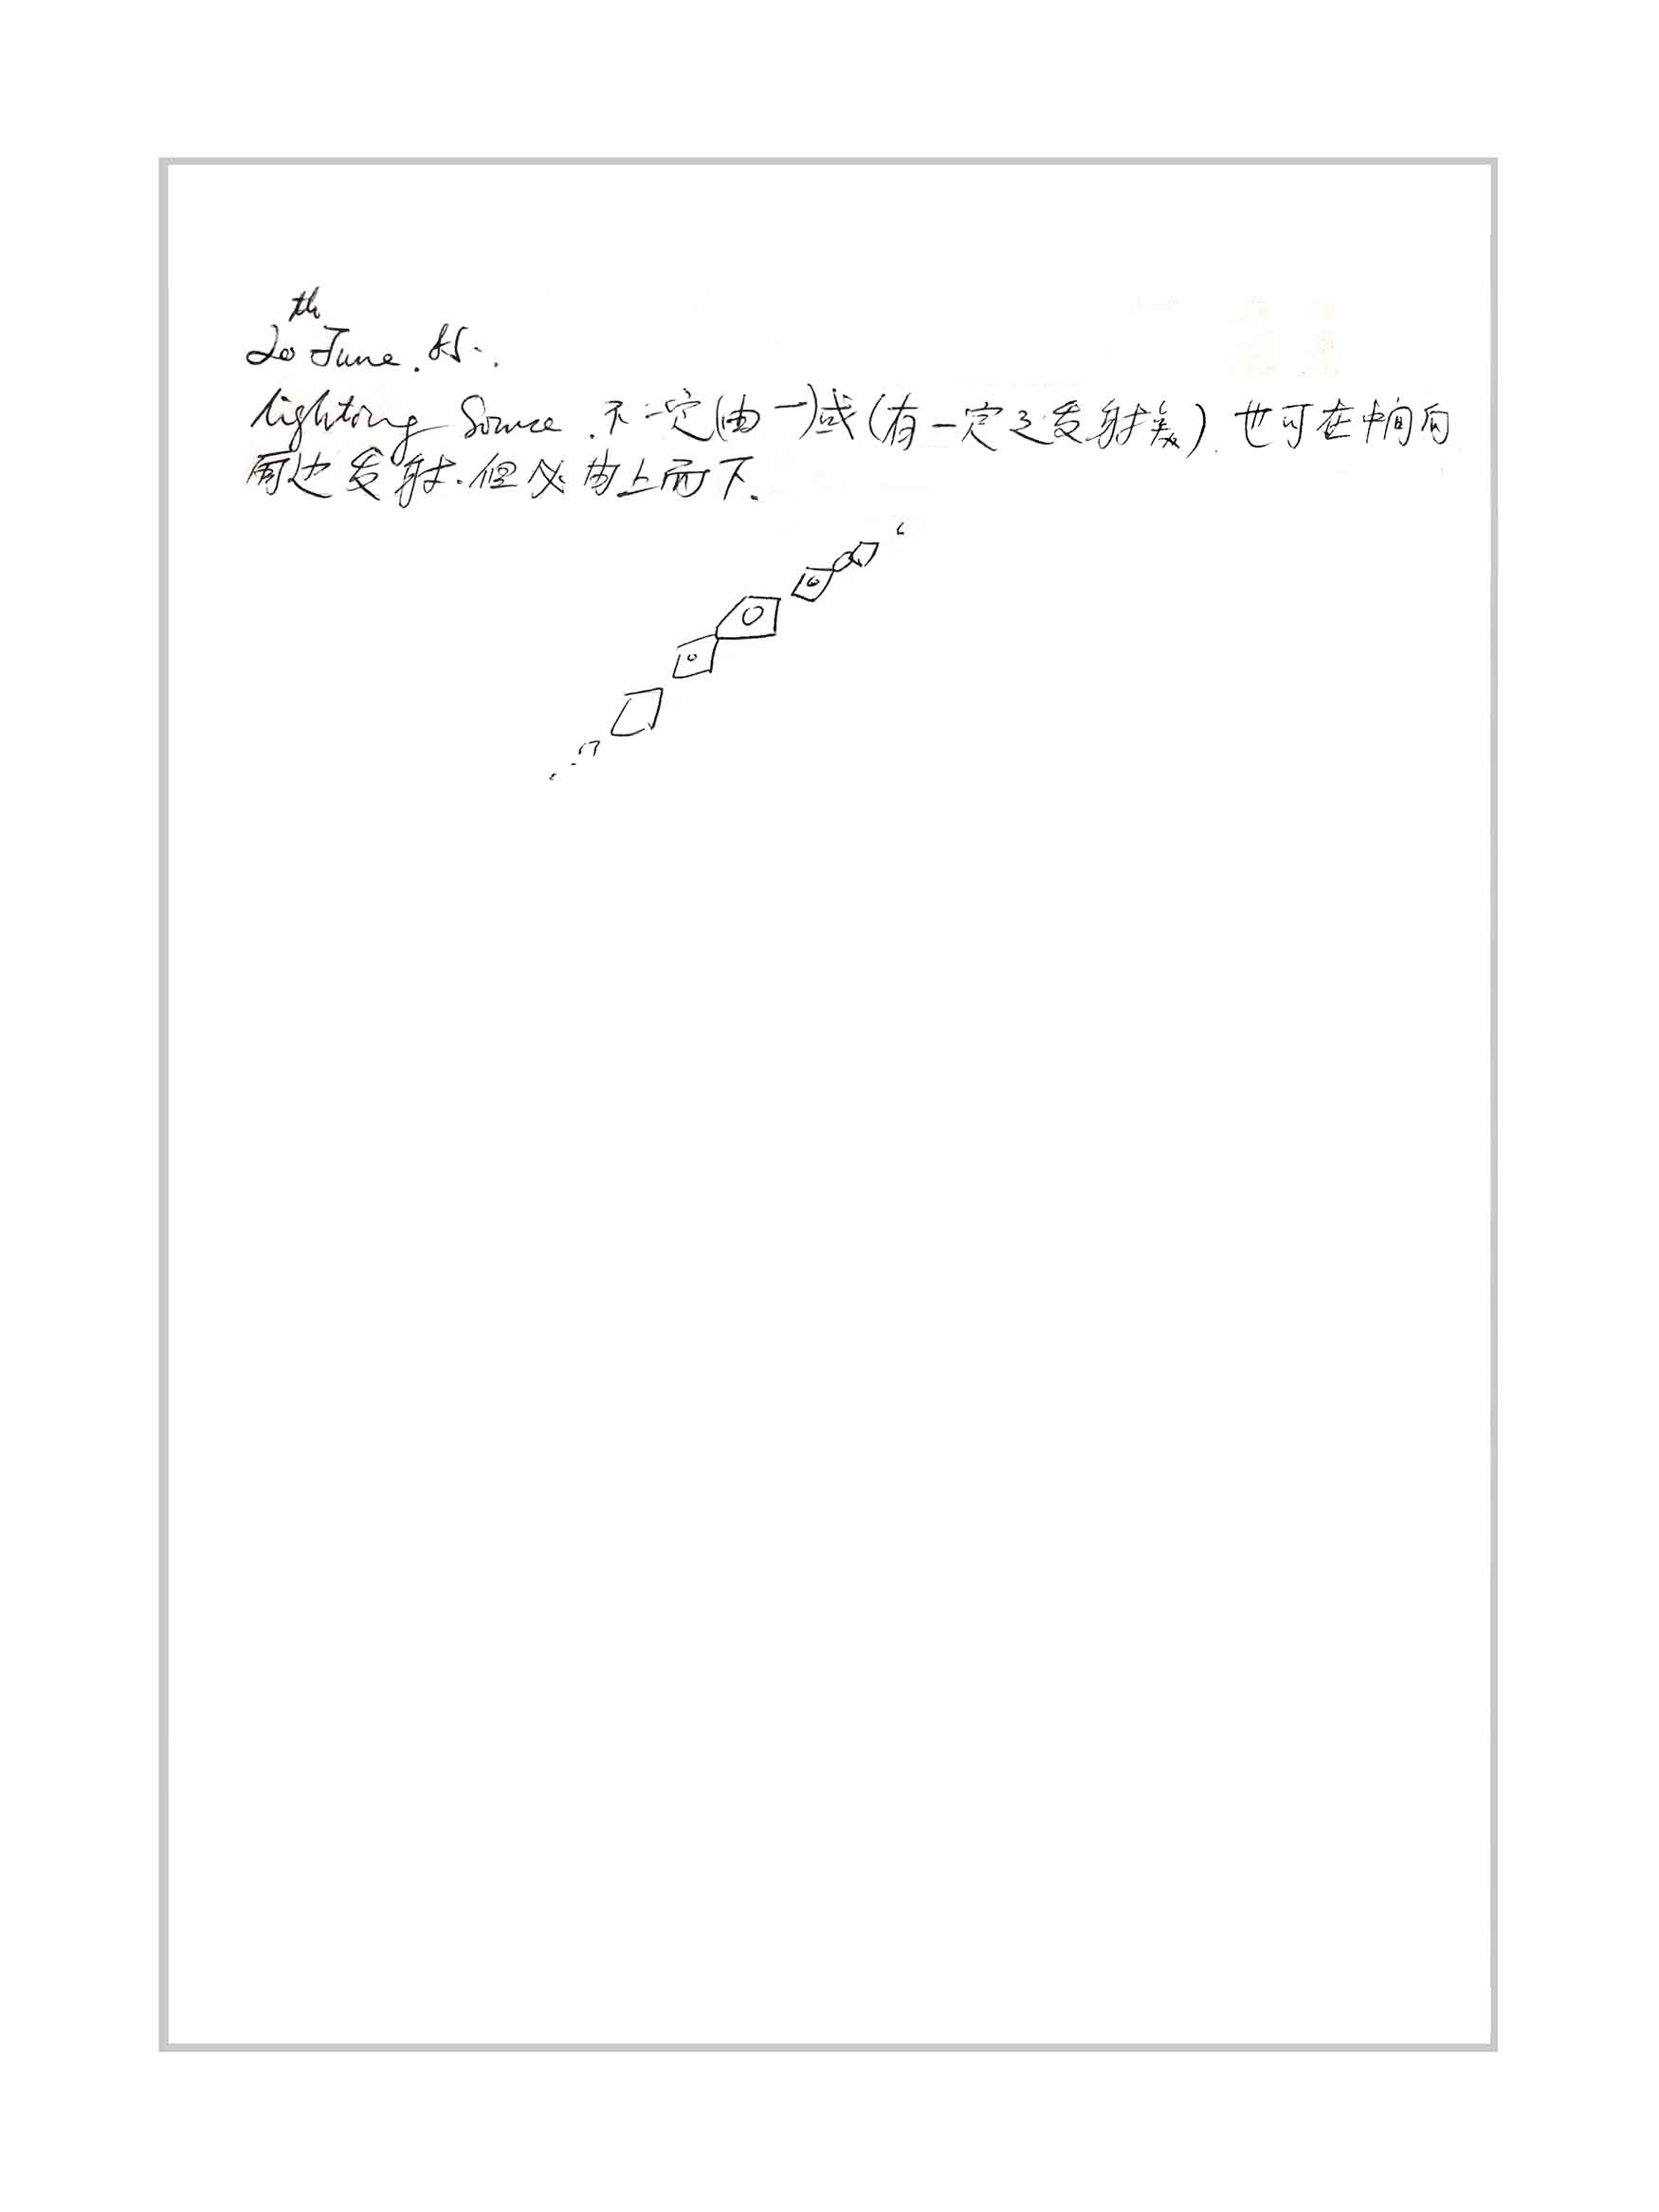 20th June. 85.
lighting Source. 不一定(由一)或(有一定之发射美). 也可在中间向
周边发射. 但必由上而下.